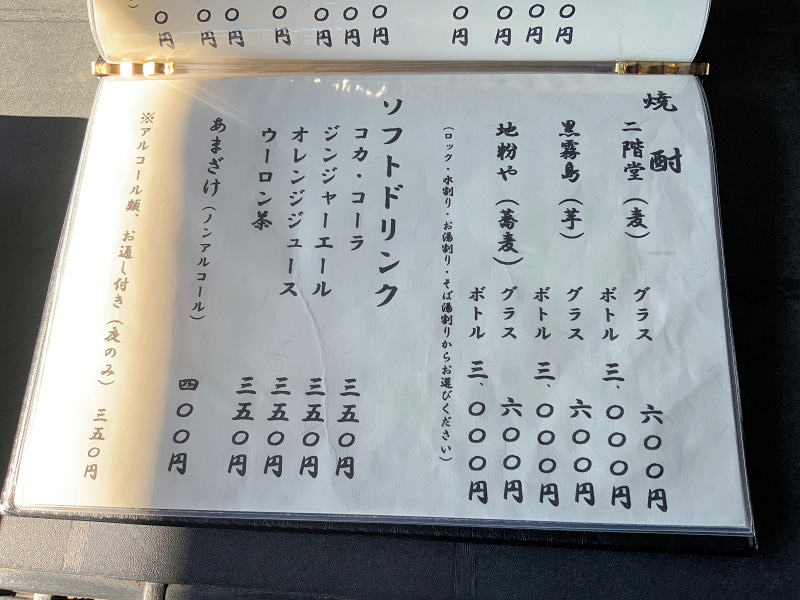 焼酎
二階堂（麦）
グラス 六〇〇円
ボトル 三、〇〇〇円
黒霧島（芋）
グラス 六〇〇円
ボトル 三、〇〇〇円
地粉や（蕎麦）
グラス 六〇〇円
ボトル 三、〇〇〇円
（ロック・水割り・お湯割り・そば湯割りからお選びください）
ソフトドリンク
コカ・コーラ 三五〇円
ジンジャーエール 三五〇円
オレンジジュース 三五〇円
ウーロン茶 三五〇円
あまざけ（ノンアルコール） 四〇〇円
※アルコール類、お通し付き（夜のみ） 三五〇円